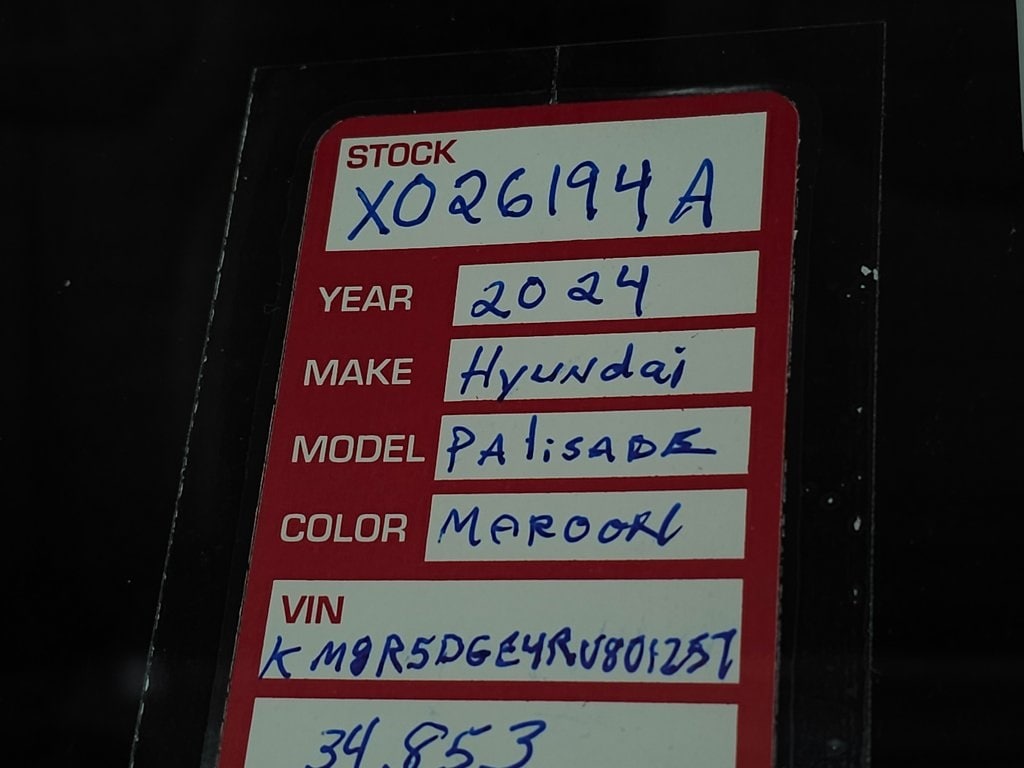 STOCK
X026194A
YEAR 2024
MAKE Hyundai
MODEL PAliSADE
COLOR MAROON
VIN
KM8R5DGE4RU801257
34,853